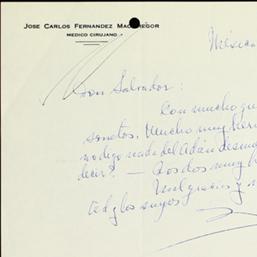 JOSE CARLOS FERNANDEZ MACGREGOR
MEDICO CIRUJANO
México
Don Salvador:
Con mucho gu
sonetos. Mucho muy her
no digo nada del Adán desnu
decir? — Los dos muy b
Mil gracias y
Ud y los suyos